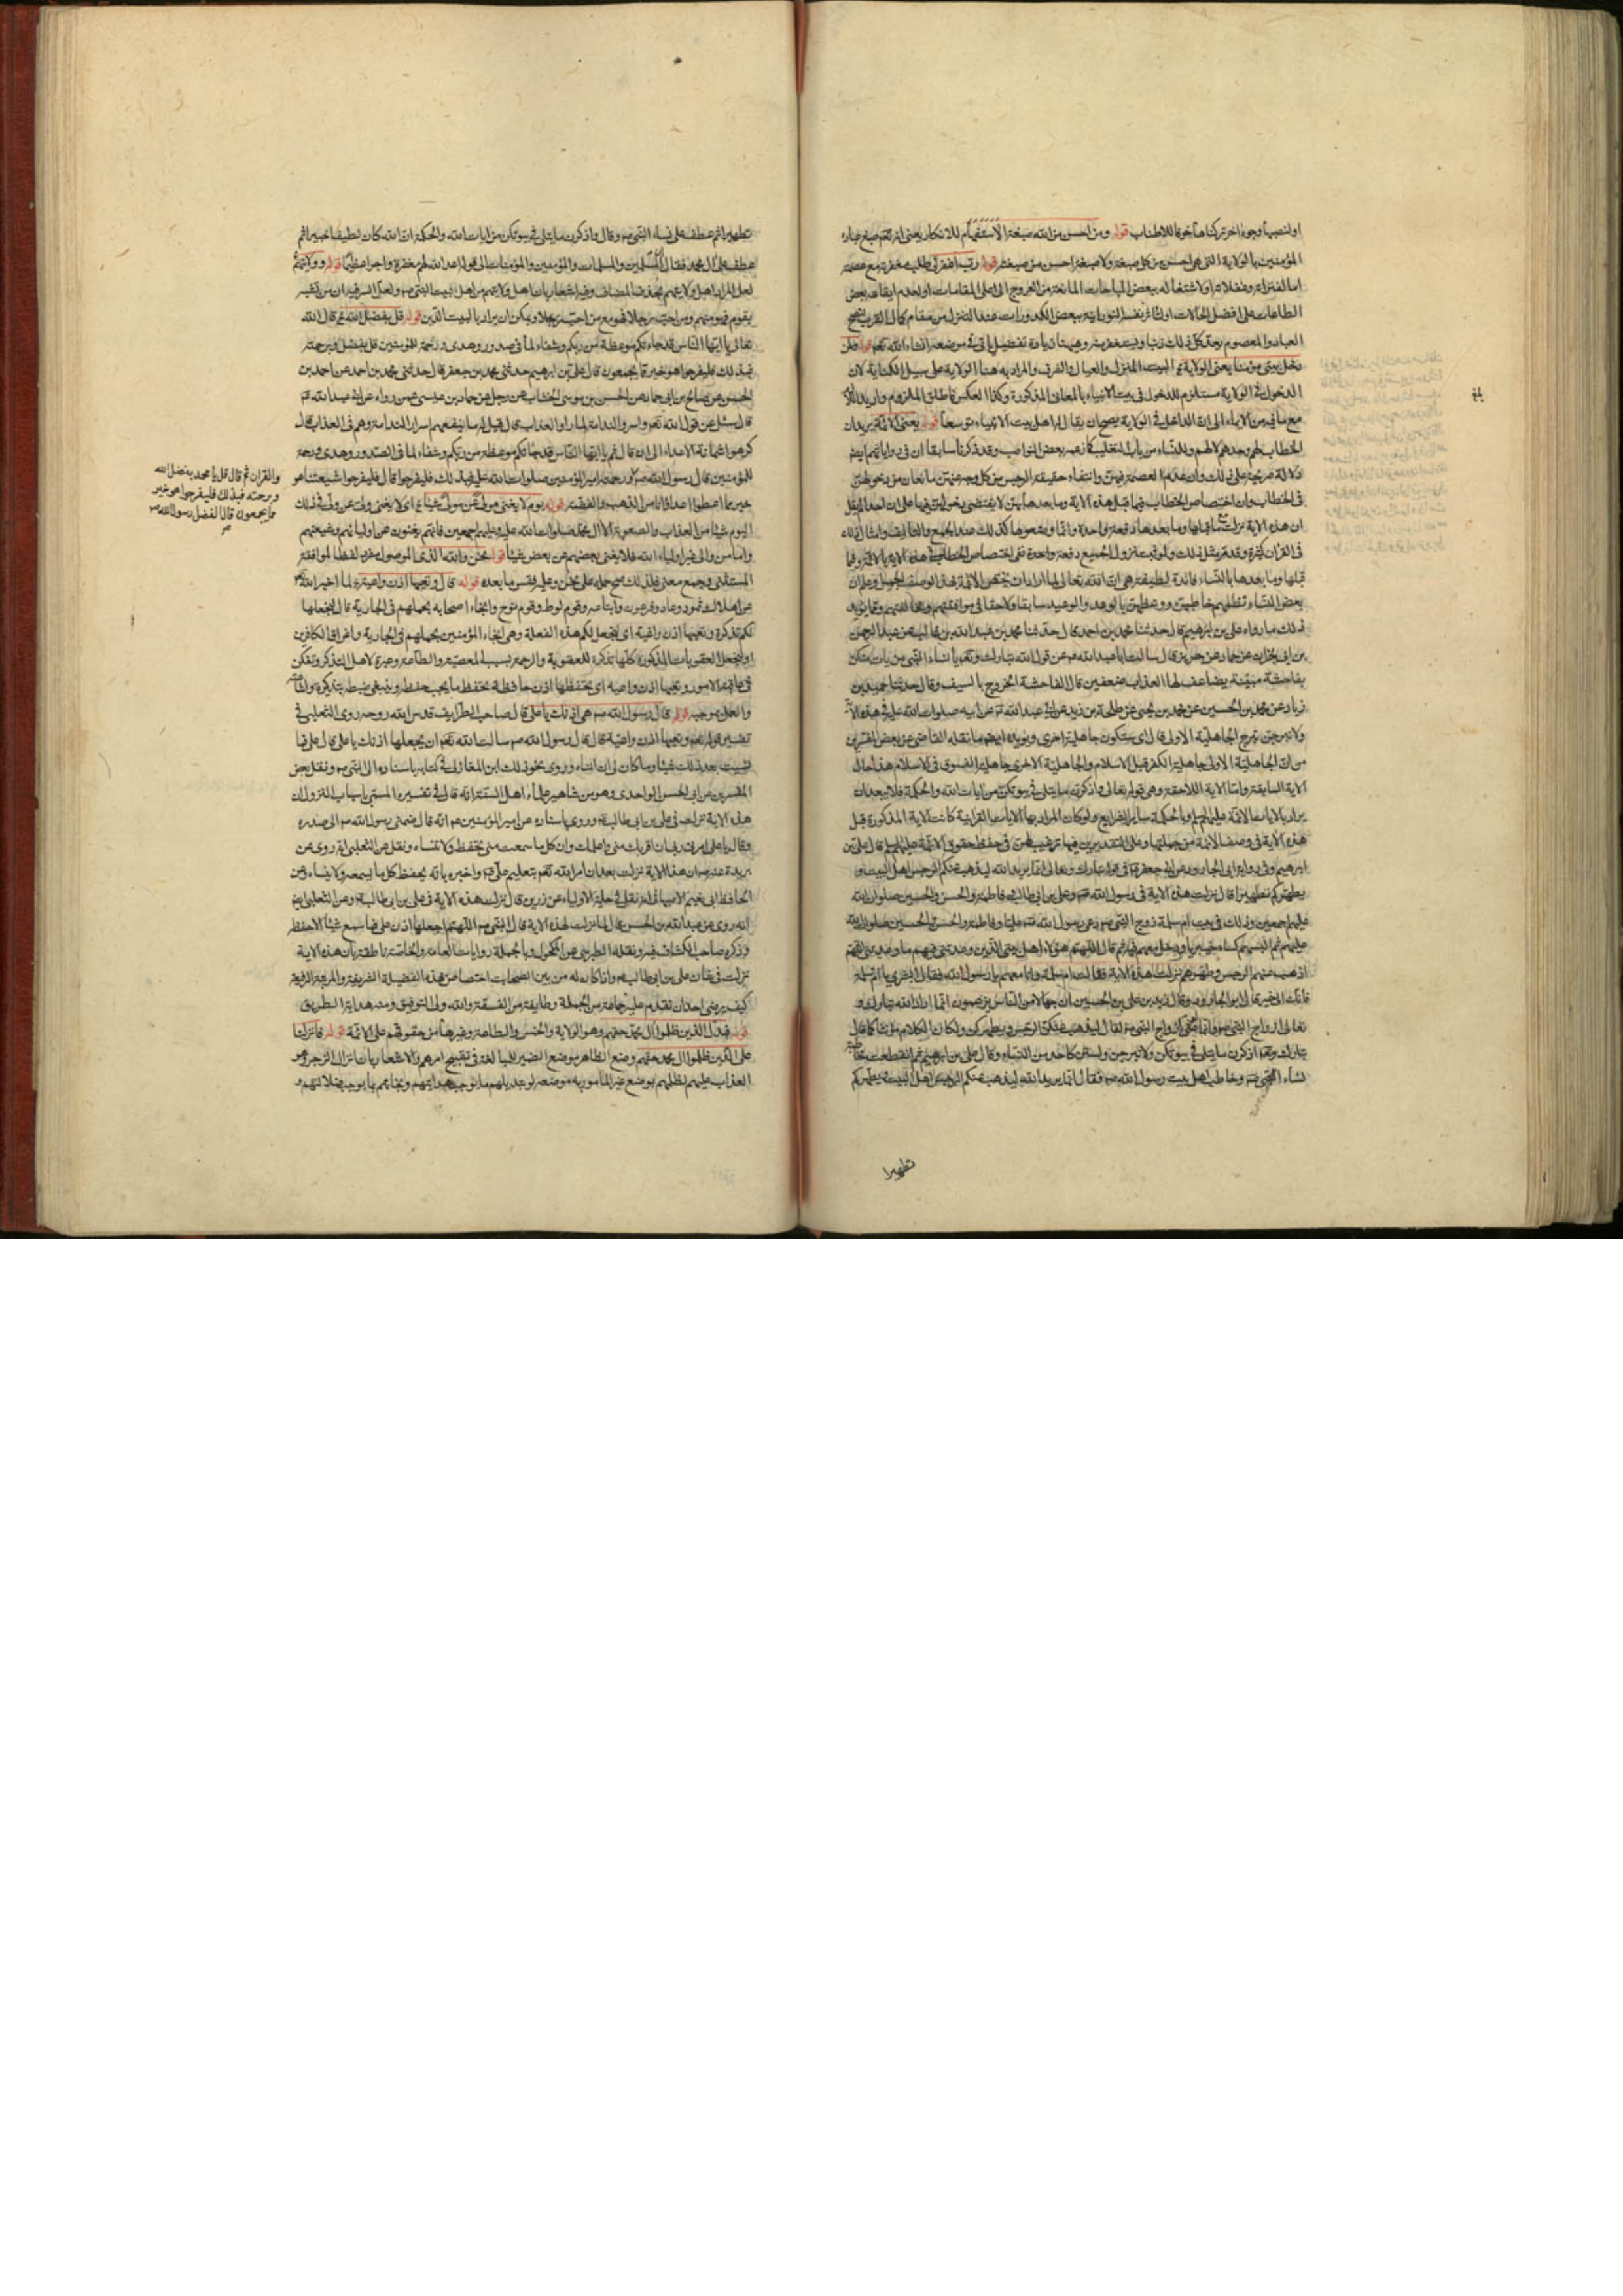 اولنصبها وجوه اخر تركناها خوفا للاطناب قوله ومن احسن من الله صبغة الاستفهام للانكار يعنى
المؤمنين بالولاية التى هى احسن من كل صبغة ولا صبغة احسن من صبغته قوله رب اغفر لى طلب مغفرته مع عصمته
اما لغيره او لاشتغاله ببعض المباحات المانعة من العروج الى اعلى المقامات او لعدم ايقاعه بعض
الطاعات على افضل الحالات او لتاثر نفسه النورانية ببعض الكدورات عند التنزل من مقام كمال القرب
العباد والمعصوم يعد كل ذلك ذنبا ويستغفر منه وهيهنا زيادة تفصيل ياتى فى موضعه انشاء الله تعم قوله ولمن
دخل بيتى مؤمنا يعنى الولاية البيت المنزل والعيال والشرف والمراد به هنا الولاية على سبيل الكناية لان
الدخول فى الولاية مستلزم للدخول فى بيت الانبياء بالمعانى المذكورة وكذا العكس فاطلق الملزوم واريد اللازم
مع ما فيه من الايماء الى ان الداخل فى الولاية يصح ان يقال له اهل بيت الانبياء توسعا قوله يعنى الائمة يريد ان
الخطاب لهم وحدهم لا لهم وللنساء من باب التغليب كما زعمه بعض النواصب وقد ذكرنا سابقا ان فى رواياتهم ايضا
دلالة صريحة على ذلك وان عدم العصمة فيهن وانتفاء حقيقة الرجس من كل وجه عنهن مانعان من دخولهن
فى الخطاب وان اختصاص الخطاب فيما قبل هذه الاية وما بعدها بهن لا يقتضى دخولهن فيها على ان احدا لم ينقل
ان هذه الاية نزلت مع ما قبلها وما بعدها دفعة واحدة وانما وضعوها كذلك عند الجمع والتاليف وامثال ذلك
فى القران كثيرة وقد مر مثل ذلك ولو ثبت نزول الجميع دفعة واحدة ففى اختصاص الخطاب فى هذه الاية بالائمة وفيما
قبلها وما بعدها بالنساء فائدة لطيفة هى ان الله تعالى لما اراد ان يختص الائمة بهذا الوصف الجميل
بعض النساء تظلمهم خاطبهن ووعظهن بالوعد والوعيد سابقا ولاحقا فى موافقتهم ومخالفتهم ومما يؤيد
ذلك ما رواه على بن ابرهيم قال حدثنا محمد بن احمد قال حدثنا محمد بن عبد الله بن غالب عن عبد الرحمن
بن ابى نجران عن حماد عن حريز قال سالت ابا عبد الله عم عن قول الله تبارك وتعم يا نساء النبى من يات منكن
بفاحشة مبينة يضاعف لها العذاب ضعفين قال الفاحشة الخروج بالسيف وقال حدثنا حميد بن
زياد عن محمد بن الحسين عن محمد بن يحيى عن طلحة بن زيد عن ابى عبد الله عم عن ابيه صلوات الله عليه فى هذه الاية
ولا تبرجن تبرج الجاهلية الاولى قال اى ستكون جاهلية اخرى ويؤيده ايضا ما نقله القاضى عن بعض المفسرين
من ان الجاهلية الاولى جاهلية الكفر قبل الاسلام والجاهلية الاخرى جاهلية الفسوق فى الاسلام هذا حال
الاية السابقة واما الاية اللاحقة وهى قوله تعالى واذكرن ما يتلى فى بيوتكن من ايات الله والحكمة فلا يبعد ان
يراد بالايات الائمة عليهم السلام وبالحكمة ساير الشرايع ولو كان المراد بها الايات القرانية كانت الاية المذكورة قبل
هذه الاية فى وصف الائمة من جملتها وعلى التقديرين فيها ترغيب لهن فى حفظ حقوق الائمة عليهم السلم قال على بن
ابرهيم وفى رواية ابى الجارود عن ابى جعفر عم فى قوله تبارك وتعالى انما يريد الله ليذهب عنكم الرجس اهل البيت و
يطهركم تطهيرا قال نزلت هذه الاية فى رسول الله ص وعلى بن ابى طالب وفاطمة والحسن والحسين صلوات الله
عليهم اجمعين وذلك فى بيت ام سلمة زوج النبى ص دعى رسول الله ص عليا وفاطمة والحسن والحسين صلوات الله
عليهم ثم البسهم كساء خيبريا ودخل معهم فيه ثم قال اللهم هؤلاء اهل بيتى الذين وعدتنى فيهم ما وعدتنى اللهم
اذهب عنهم الرجس وطهرهم نزلت هذه الاية فقالت ام سلمة وانا معهم يا رسول الله فقال ابشرى يا ام سلمة
فانك الى خير قال ابو الجارود وقال زيد بن على بن الحسين ان جهالا من الناس يزعمون انما اراد الله تبارك و
تعالى ازواج النبى ص وانما عنى ازواج النبى ص لقال ليذهب عنكن الرجس ويطهركن ولكان الكلام مؤنثا كما قال
تبارك وتعم اذكرن ما يتلى فى بيوتكن ولا تبرجن ولستن كاحد من النساء وقال على بن ابرهيم ثم انقطعت مخاطبة
نساء النبى ص وخاطب اهل بيت رسول الله ص فقال انما يريد الله ليذهب عنكم الرجس اهل البيت ويطهركم
تطهيرا
تطهيرا ثم عطف على نساء النبى ص وقال واذكرن ما يتلى فى بيوتكن من ايات الله والحكمة ان الله كان لطيفا خبيرا ثم
عطف على ال محمد فقال ان المسلمين والمسلمات والمؤمنين والمؤمنات الى قوله اعد الله لهم مغفرة واجرا عظيما قوله وولايتهم
لعل المراد اهل ولايتهم بحذف المضاف وفيه اشعار بان اهل ولايتهم من اهل بيت النبى ص ولعل السر فيه ان من تشبه
بقوم فهو منهم ومن احب رجلا فهو مع من احب رجلا ويمكن ان يراد بالبيت الدين قوله قل بفضل الله قال الله
تعالى يا ايها الناس قد جاءتكم موعظة من ربكم وشفاء لما فى صدور وهدى ورحمة للمؤمنين قل بفضل وبرحمته
فبذلك فليفرحوا هو خير مما يجمعون قال على بن ابرهيم حدثنى محمد بن جعفر قال حدثنى محمد بن احمد عن احمد بن
الحسين عن صالح بن ابى حماد عن الحسن بن موسى الخشاب عن رجل عن حماد بن عيسى عمن رواه عن ابى عبد الله عم
قال سئل عن قول الله تعم واسروا الندامة لما راوا العذاب قال قيل له ما ينفعهم اسرار الندامة وهم فى العذاب قال
كرهوا شماتة الاعداء الى ان قال ثم يا ايها الناس قد جاءتكم موعظة من ربكم وشفاء لما فى الصدور وهدى ورحمة
للمؤمنين قال رسول الله ص ورحمته امير المؤمنين صلوات الله عليه فبذلك فليفرحوا قال فليفرحوا شيعتنا هو
خير مما اعطوا اعداؤنا من الذهب والفضة قوله يوم لا يغنى مولى عن مولى شيئا اى لا يغنى ولى عن ولى فى ذلك
اليوم شيئا من العذاب والصعوبة الا ال محمد صلوات الله عليه وعليهم اجمعين فانهم يغنون عن اوليائهم وشيعتهم
واما من والى غير اولياء الله فلا يغنى بعضهم عن بعض شيئا قوله نحن والله الذى الموصول مفرد لفظا لموافقة
المستثنى وجمع معنى فلذلك صح حمله على نحن وعليه فقس ما بعده قوله قال وتعيها اذن واعية لما اخبر الله
عن اهلاك ثمود وعاد وفرعون واتباعه وقوم لوط وقوم نوح وانجاء اصحابه بحملهم فى الجارية قال لنجعلها
لكم تذكرة وتعيها اذن واعية اى لنجعل لكم هذه الفعلة وهى انجاء المؤمنين بحملهم فى الجارية واغراق الكافرين
او لنجعل العقوبات المذكورة كلها تذكرة للعقوبة والرحمة بسبب المعصية والطاعة وعبرة لاهل التذكر وتفكر
فى عاقبة الامور وتعيها اذن واعيه اى يحفظها اذن حافظة تحفظ ما يجب حفظه وينبغى ضبطه بتذكره
والعمل بموجبه قوله قال رسول الله ص هى اذنك يا على قال صاحب الطرايف قدس الله روحه روى الثعلبى فى
تفسير قوله تعم وتعيها اذن واعية قال قال رسول الله ص سالت الله تعم ان يجعلها اذنك يا على قال على فما
نسيت بعد ذلك شيئا وما كان لى ان انساه وروى نحو ذلك ابن المغازلى فى كتابه باسناده الى النبى ص ونقل بعض
المفسرين عن ابى الحسن الواحدى وهو من مشاهير علماء اهل السنة انه قال فى تفسيره المسمى باسباب النزول ان
هذه الاية نزلت فى على بن ابى طالب عم وروى باسناده عن امير المؤمنين عم انه قال ضمنى رسول الله ص الى صدره
وقال يا على امرنى ربى ان اقربك منى واعلمك وان كل ما سمعت منى تحفظ ولا تنساه ونقل عن الثعلبى انه روى عن
بريدة عنه ص ان هذا الاية نزلت بعد ان امر الله تعم بتعليم على عم واخبره بانه يحفظ كل ما يسمعه ولا ينساه وعن
الحافظ ابى نعيم الاصبهانى انه نقل فى حلية الاولياء عن زر بن قال نزلت هذه الاية فى على بن ابى طالب عم وعن الثعلبى ايضا
انه روى عن عبد الله بن الحسن قال لما نزلت هذه الاية قال النبى ص اللهم اجعلها اذن على فما سمع شيئا الا حفظه
وذكره صاحب الكشاف ونقله الطبرسى عن المكحول وبالجملة روايات العامة والخاصة ناطقة بان هذه الاية
نزلت فى شان على بن ابى طالب عم واذا كان له من بين الصحابة اختصاص هذه الفضيلة الشريفة والمرتبة الرفيعة
كيف يرضى احد ان تقدم عليه جماعة من الجهلة وطايفة من الفسقة والله ولى التوفيق ومنه هداية الطريق
قوله فبدل الذين ظلموا ال محمد حقهم وهو الولاية والخمس والطاعة وغيرها من حقوقهم على الامة قوله فانزلنا
على الذين ظلموا ال محمد حقهم وضع الظاهر موضع الضمير للمبالغة فى تقبيح امرهم والاشعار بان انزال الرجز وهو
العذاب عليهم لظلمهم بوضع غير المامور به موضعه او تبديلهم ما يوجب هدايتهم ونجاتهم بما يوجب ضلالتهم و
والقران ثم قال قل يا محمد بفضل الله
وبرحمته فبذلك فليفرحوا هو خير
مما يجمعون قال الفضل رسول الله ص